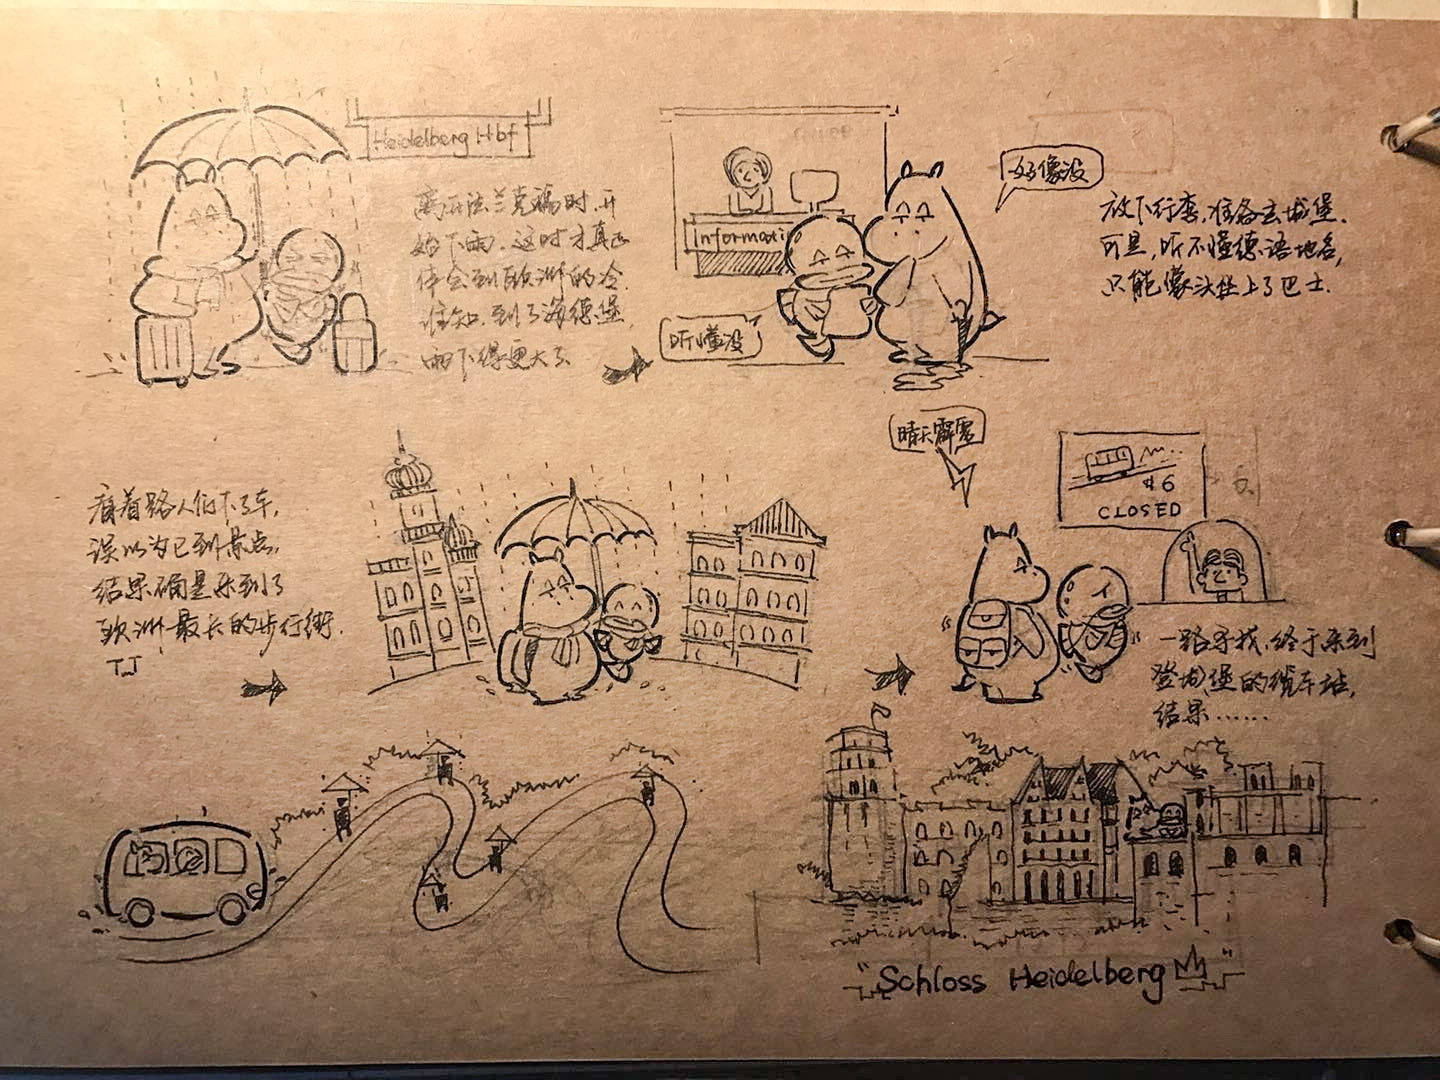 Heidelberg Hbf
离开法兰克福时,开
始下雨。这时才真正
体会到欧洲的冷.
谁知,到了海德堡,
雨下得更大了
Informati
听懂没
好像没
放下行李,准备去城堡.
可是,听不懂德语地名,
只能像头往上了巴士.
看着路人们下了车,
误以为已到景点,
结果确是来到了
欧洲最长的步行街.
T_T
晴天霹雳
$6
CLOSED
一路寻找,终于来到
登城堡的缆车站,
结果……
"Schloss Heidelberg"